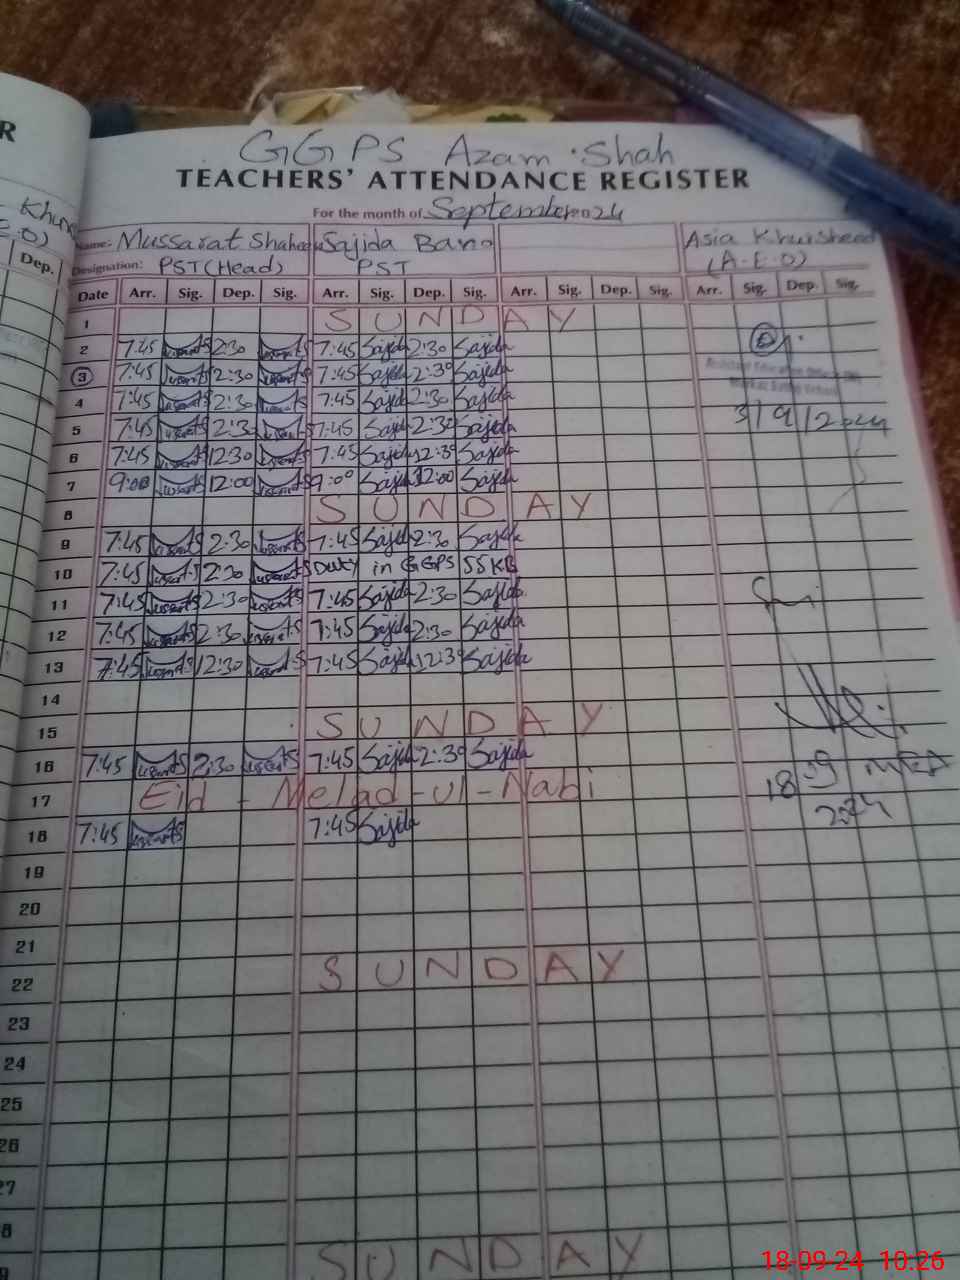 R
GGPS Azam Shah
TEACHERS' ATTENDANCE REGISTER
For the month of September 2024
Name: Mussarat Shaheen Sajida Bano Asia Khursheed
Designation: PST (Head) PST (A.E.O)
Dep. Date Arr. Sig. Dep. Sig. Arr. Sig. Dep. Sig. Arr. Sig. Dep. Sig. Arr. Sig. Dep. Sig.
1 SUNDAY
2 7:45 2:30 7:45 Sajida 2:30 Sajida
3 7:45 2:30 7:45 Sajida 2:30 Sajida
4 7:45 2:30 7:45 Sajida 2:30 Sajida
5 7:45 2:30 7:45 Sajida 2:30 Sajida 3/9/2024
6 7:45 12:30 7:45 Sajida 12:30 Sajida
7 9:00 12:00 9:00 Sajida 12:00 Sajida
8 SUNDAY
9 7:45 2:30 7:45 Sajida 2:30 Sajida
10 7:45 2:30 Duty in GGPS 55KB
11 7:45 2:30 7:45 Sajida 2:30 Sajida
12 7:45 2:30 7:45 Sajida 2:30 Sajida
13 7:45 12:30 7:45 Sajida 12:30 Sajida
14
15 SUNDAY
16 7:45 2:30 7:45 Sajida 2:30 Sajida
17 Eid - Melad-ul-Nabi 18 09
18 7:45 7:45 Sajida 2024
19
20
21
22 SUNDAY
23
24
25
26
27
8
9 SUNDAY
18-09-24 10:26